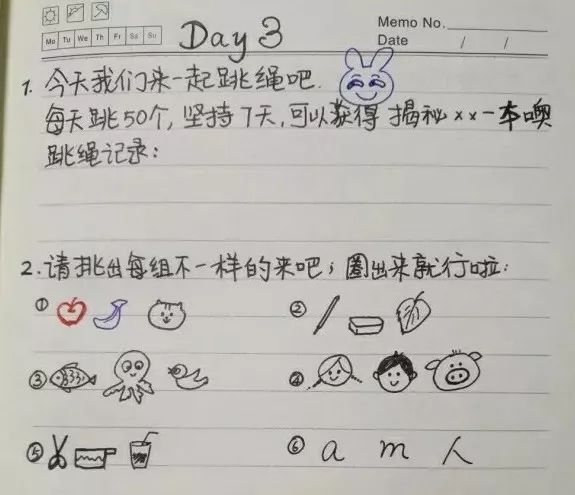 Memo No.
Mo Tu We Th Fr Sa Su
Day 3
Date / /
1. 今天我们来一起跳绳吧.
每天跳50个, 坚持7天, 可以获得 揭秘××一本噢
跳绳记录:
2. 请挑出每组不一样的来吧; 圈出来就行啦:
①
②
③
④
⑤
⑥ a m 人